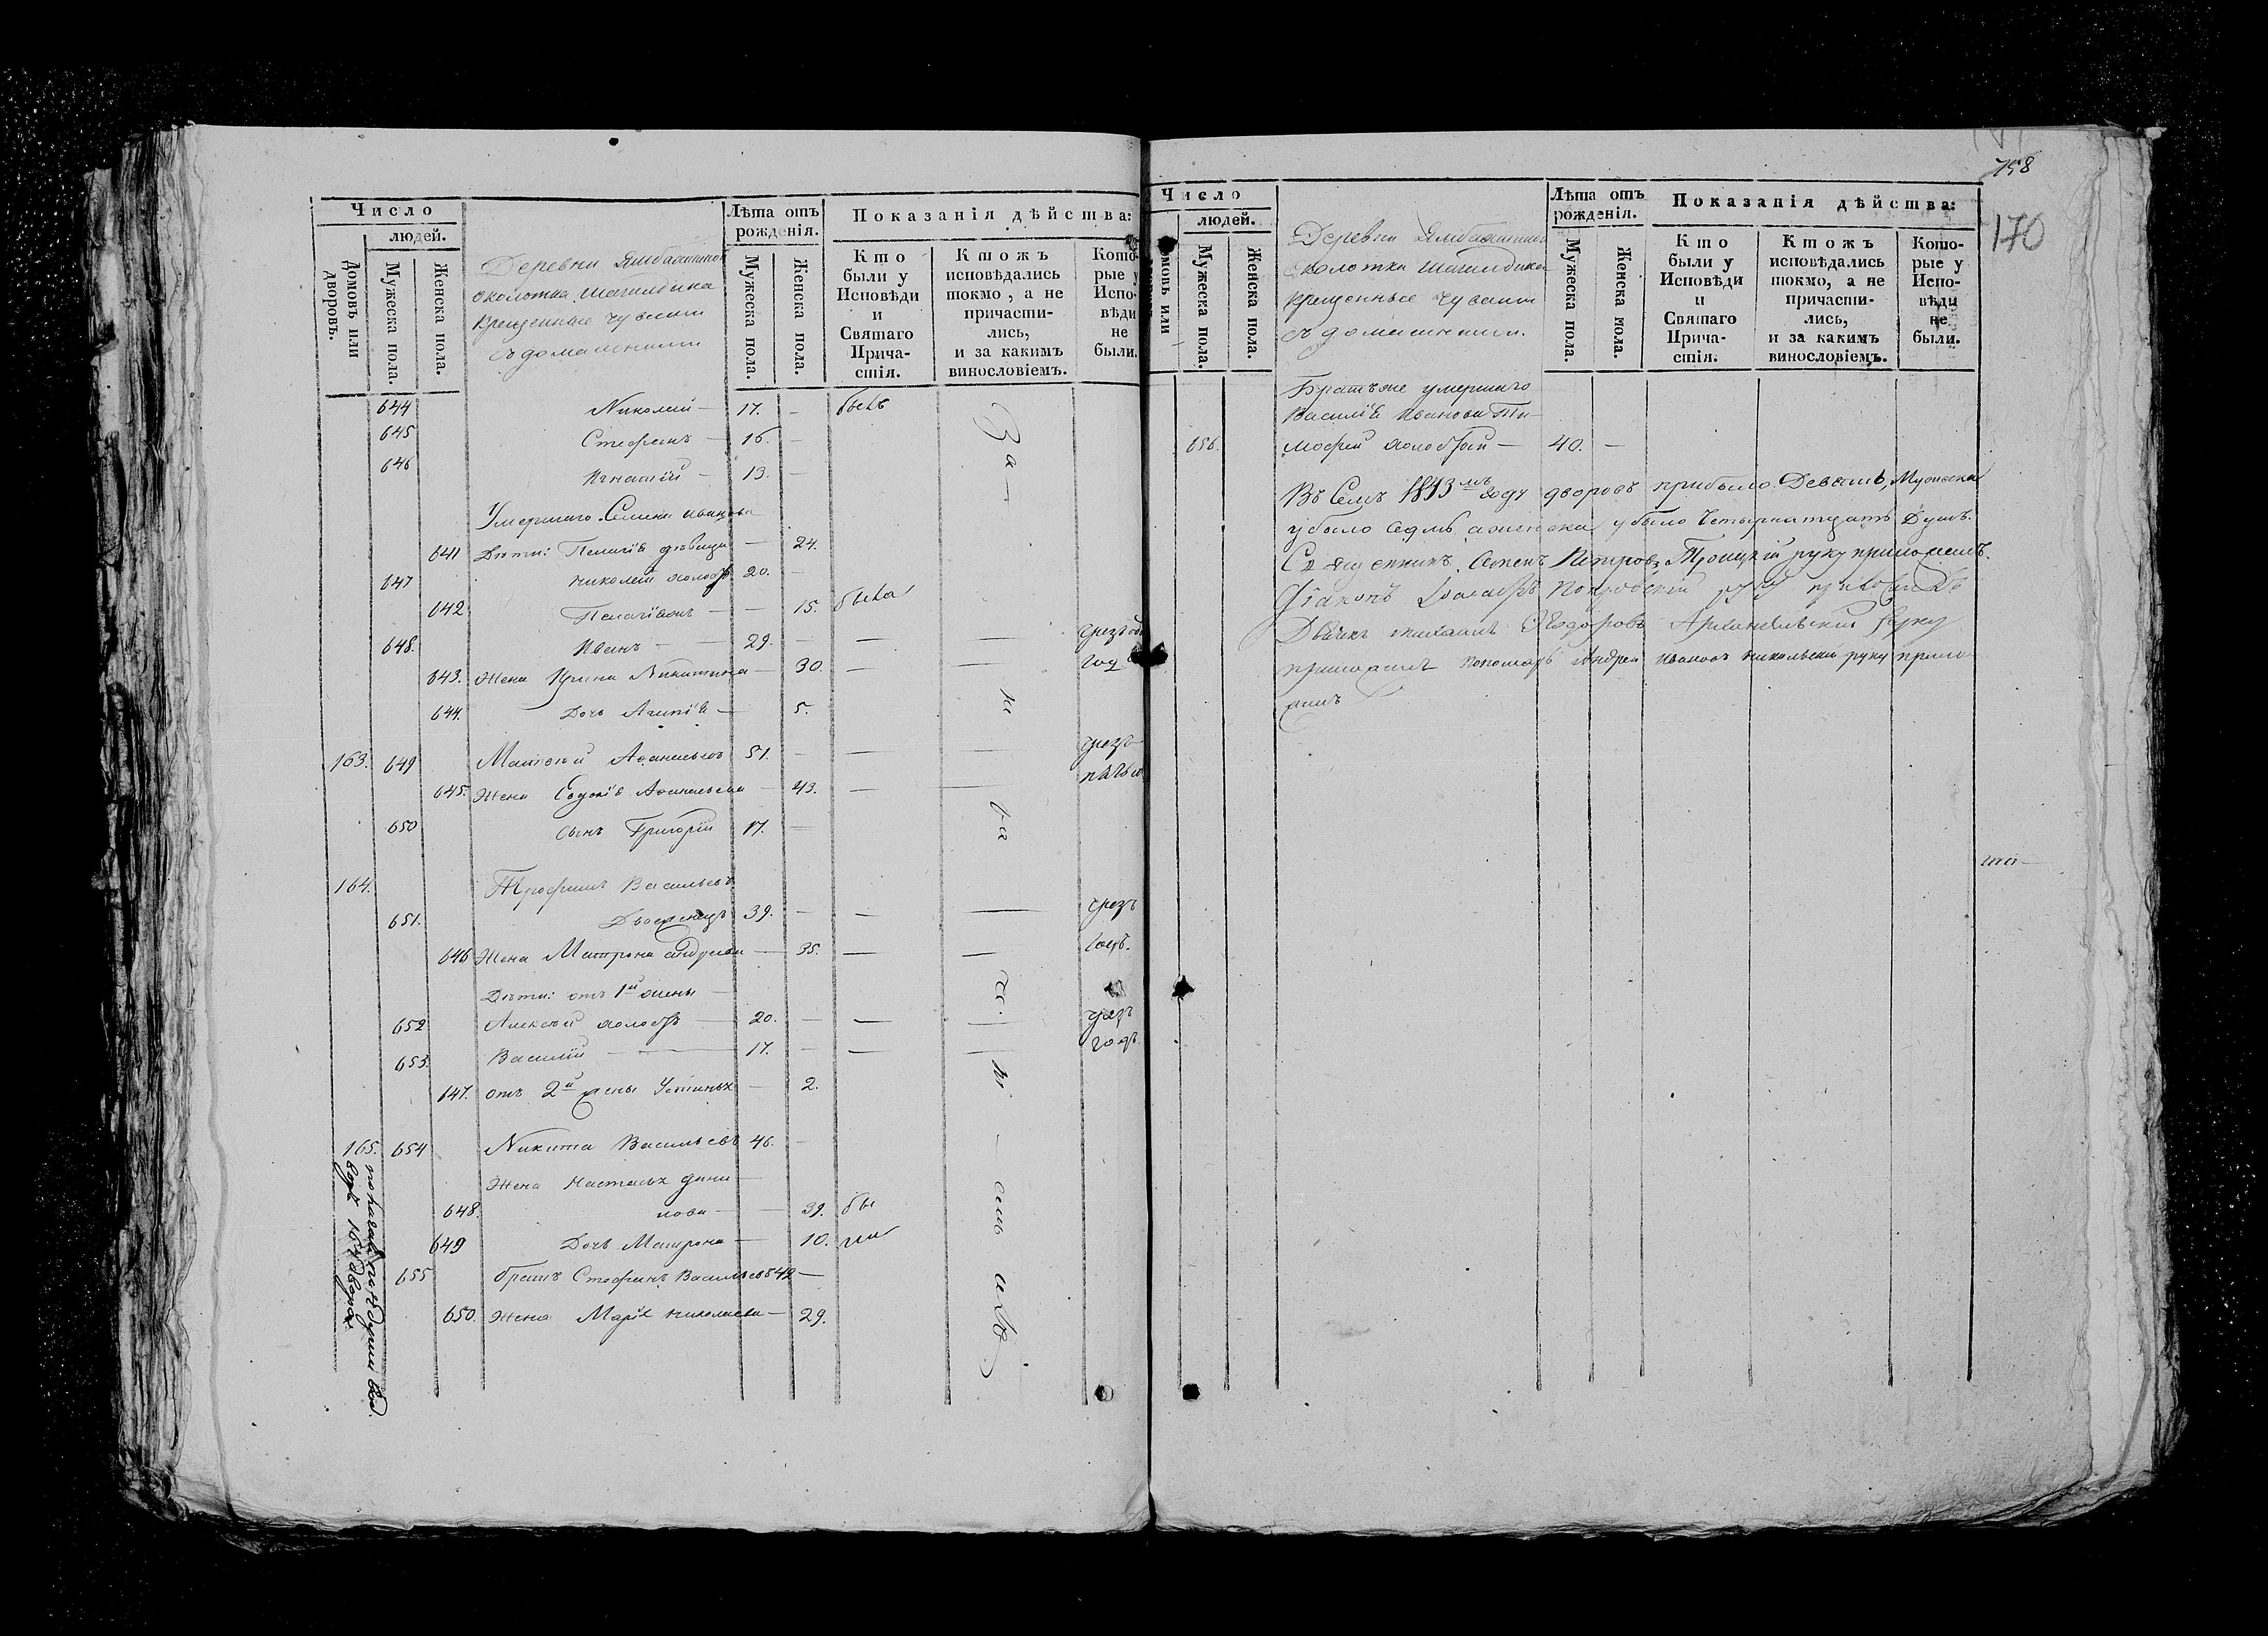 Число
людей.
Домовъ или дворовъ.
Мужеска пола.
Женска пола.
Деревни
околотка
крещенные чуваши
съ домашними
Лѣта отъ рожденія.
Мужеска пола.
Женска пола.
Показанія дѣйства:
Кто были у Исповѣди и Святаго Прича-стія.
Ктожъ исповѣдались токмо, а не причасти-лись, и за какимъ винословіемъ.
Кото-рые у Испо-вѣди не были.
644 Николай — 17. — былъ
645 Стефанъ — 16. —
646 Игнатій — 13. —
Умершаго Семена Иванова
641 Дѣти: Пелагія дѣвица — 24.
647 Николай холостъ 20. —
642 — 15. была
648. Иванъ — 29. — — — чрезъ
643. Жена Ирина Никитина — 30. — — год
644. Дочь — 5.
163. 649 Матвѣй 51. — — — чрезъ
645. Жена Евдокія — 43. —
650 Сынъ Григорій 17. —
164. Трофимъ Васильевъ
651. Двоеженецъ 39. — — — чрезъ
646 Жена Матрона Андреева — 35. — — годъ.
Дѣти: отъ 1й жены —
652 Алексѣй холостъ — 20. — — — чрезъ
653. Василій — 17. — — — годъ
647. отъ 2й жены Устинья — 2.
165. 654 Никита Васильевъ 46. —
Жена Настасья Дани
648. лова — — 39. бы
649 Дочь Матрона — 10. ли
655 братъ Стефанъ Васильевъ 42 —
650. Жена Марія Николаева — 29.
758
170
Число
людей.
Мужеска пола.
Женска пола.
Деревни
околотка
крещенные чуваши
съ домашними.
Лѣта отъ рожденія.
Мужеска пола.
Женска пола.
Показанія дѣйства:
Кто были у Исповѣди и Святаго Прича-стія.
Ктожъ исповѣдались токмо, а не причасти-лись, и за какимъ винословіемъ.
Кото-рые у Испо-вѣди не были.
Братъ же умершаго
Василія Иванова Ти-
656. мофей холостой — 40. —
Въ Семъ 1843мъ году дворовъ прибыло Девять, Мужеска
убыло седмь а женска убыло Четырнатцать Душъ.
Священникъ Семенъ Петровъ Троицкій руку приложилъ.
Діаконъ Покровскій руку приложилъ
Дьячкъ Михаилъ Ѳедоровъ Архангельскій руку
приложилъ Пономарь Андрей Ивановъ Никольски руку прило
жилъ